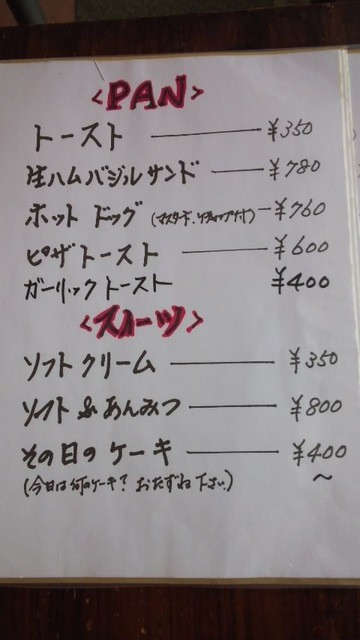 <PAN>
トースト ¥350
生ハムバジルサンド ¥780
ホットドッグ (マスタード、ケチャップ付) ¥760
ピザトースト ¥600
ガーリックトースト ¥400
<スイーツ>
ソフトクリーム ¥350
ソフト&あんみつ ¥800
その日のケーキ ¥400
(今日は何のケーキ? おたずね下さい) 〜